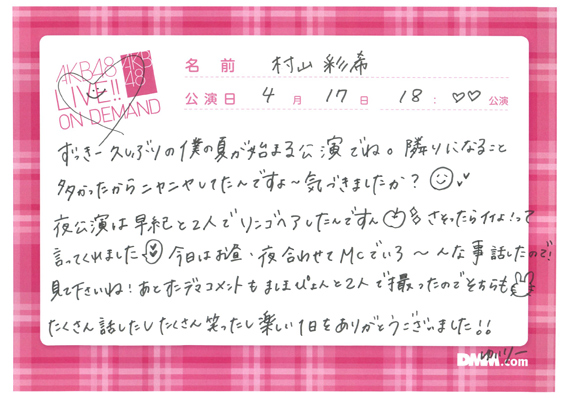 AKB48
LIVE!!
ON DEMAND
AKB
48
名 前 村山 彩希
公演日 4 月 17 日 18 : ♡♡ 公演
ずっきー久しぶりの僕の夏が始まる公演でね。隣りになること
多かったからニヤニヤしてたんですよ〜気づきましたか?
夜公演は早紀と2人でリンゴヘアしたんですん 多さそったらイイよ!って
言ってくれました 今日はお昼・夜合わせてMCでいろ〜んな事話したので!
見て下さいね!あとオンデマコメントもましまぴょんと2人で撮ったのでそちらも
たくさん話したしたくさん笑ったし楽しい1日をありがとうございました!!
ゆいりー
DMM.com